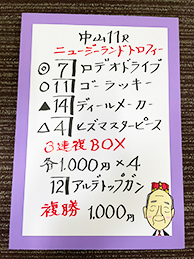 中山11R
ニュージーランドトロフィー
◎ 7 ロデオドライブ
○ 11 ゴーラッキー
▲ 14 ディールメーカー
△ 4 ヒズマスターピース
3連複BOX
各1,000円×4
12 アルデトップガン
複勝 1,000円